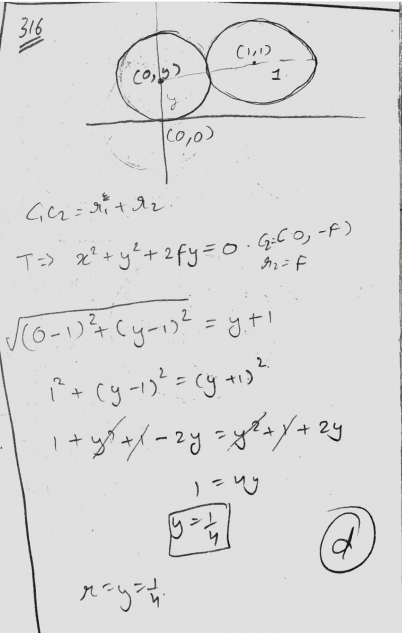 316
(0,y)
(1,1)
1
y
(0,0)
C₁C₂ = r₁ + r₂
T⇒ x² + y² + 2fy = 0 . C₂=(0, -f)
r₂ = f
√(0-1)² + (y-1)² = y+1
1² + (y-1)² = (y+1)²
1 + y² + 1 - 2y = y² + 1 + 2y
1 = 4y
y = 1/4
d
r = y = 1/4.